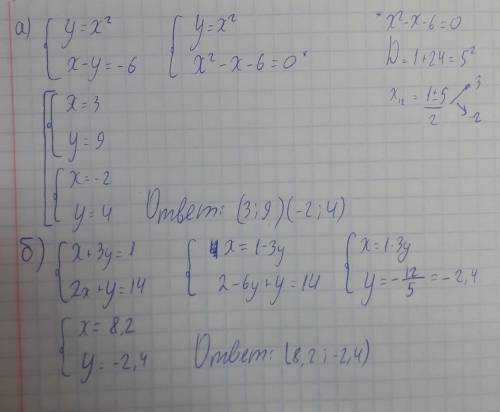 а) { y=x² { y=x² *x²-x-6=0
x-y=-6 x²-x-6=0* D=1+24=5²
x₁₂=(1±5)/2 3 -2
[ { x=3
y=9
{ x=-2
y=4 Ответ: (3;9)(-2;4)
б) { x+3y=1 { x=1-3y { x=1-3y
2x+y=14 2-6y+y=14 y=-12/5=-2,4
{ x=8,2
y=-2,4 Ответ: (8,2;-2,4)